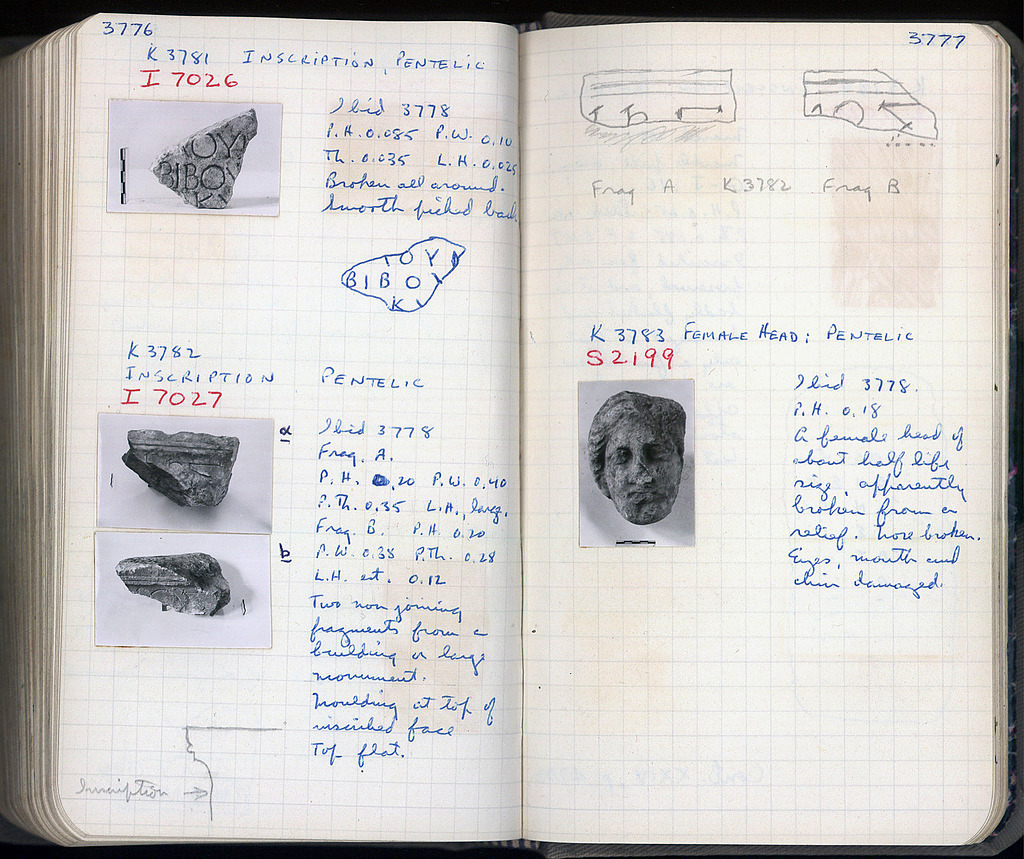 3776
K 3781 INSCRIPTION, PENTELIC
I 7026
Ibid 3778
P.H. 0.085 P.W. 0.10
Th. 0.035 L.H. 0.025
Broken all around.
Smooth picked back
ΟΥ
ΒΙΒΟΥ
Κ
ΤΟΥ
ΒΙΒΟΥ
Κ
K 3782
INSCRIPTION PENTELIC
I 7027
a
Ibid 3778
Frag. A.
P.H. 0.20 P.W. 0.40
P.Th. 0.35 L.H., large.
Frag. B. P.H. 0.20
b
P.W. 0.38 P.Th. 0.28
L.H. est. 0.12
Two non joining
fragments from a
building or large
monument.
Moulding at top of
inscribed face
Top flat.
Inscription →
3777
Frag A K3782 Frag B
K 3783 FEMALE HEAD: PENTELIC
S 2199
Ibid 3778.
P.H. 0.18
A female head of
about half life
size, apparently
broken from a
relief. Nose broken.
Eyes, mouth and
chin damaged.